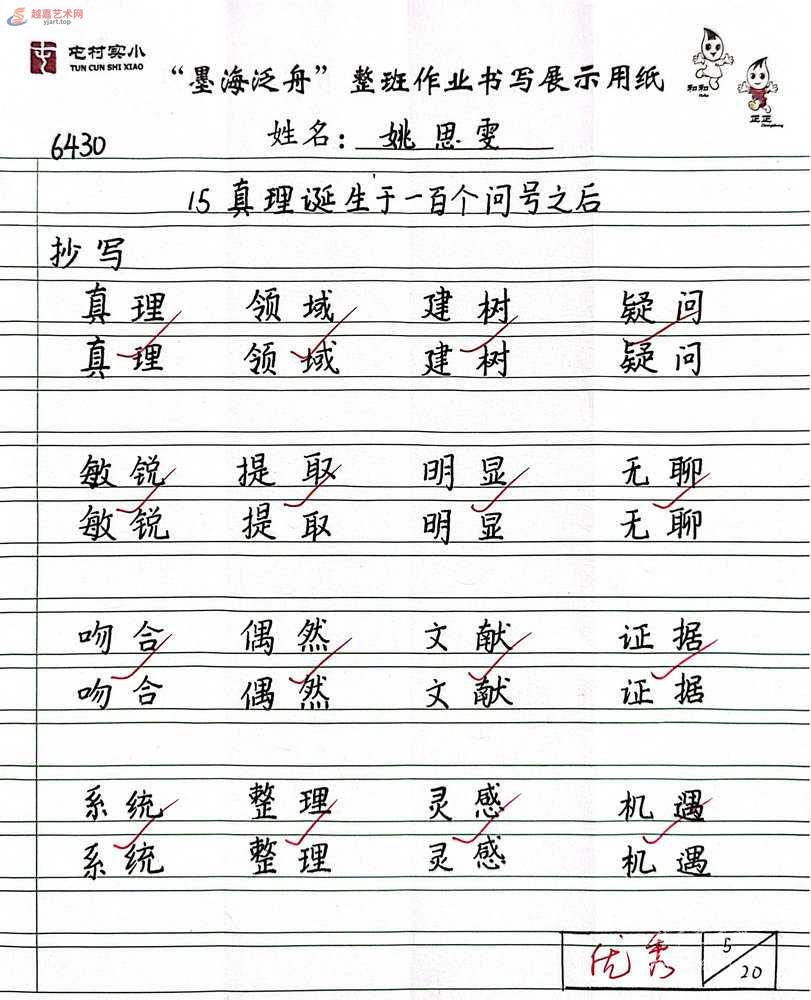 越嘉艺术网
yjart.top
屯村实小
TUN CUN SHI XIAO
“墨海泛舟”整班作业书写展示用纸
和和
Hehe
正正
Zhengzheng
6430
姓名：姚思雯
15真理诞生于一百个问号之后
抄写
真理 领域 建树 疑问
真理 领域 建树 疑问
敏锐 提取 明显 无聊
敏锐 提取 明显 无聊
吻合 偶然 文献 证据
吻合 偶然 文献 证据
系统 整理 灵感 机遇
系统 整理 灵感 机遇
优秀 5/20